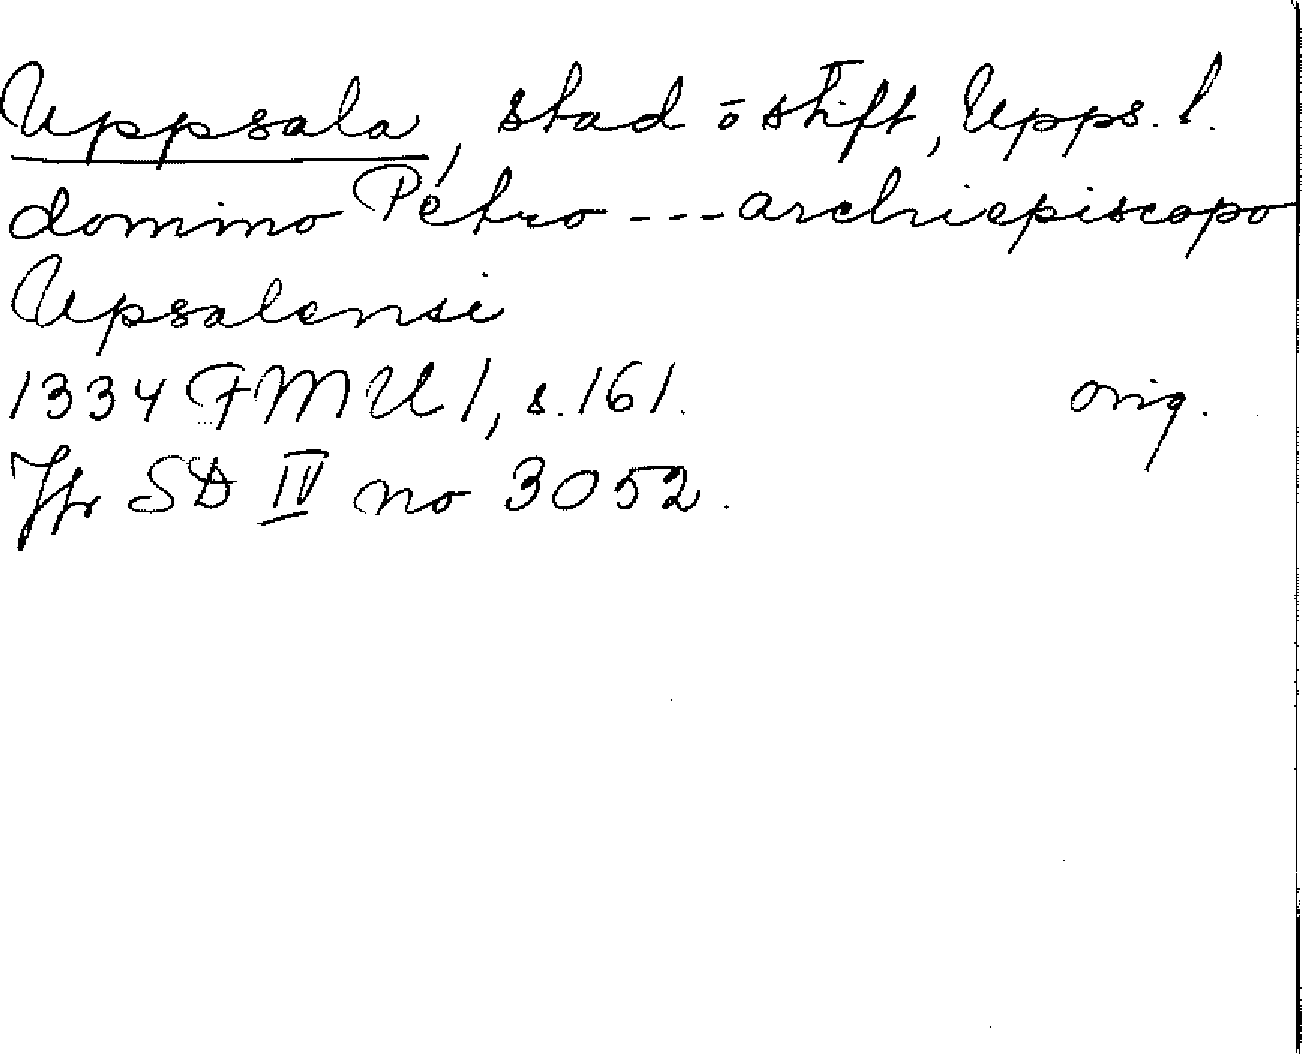 Uppsala, stad ō stift, Upps. l.
domino Petro --- archiepiscopo
Upsalensi
1334 FMU 1, s. 161. orig.
Jfr SD IV no 3052.